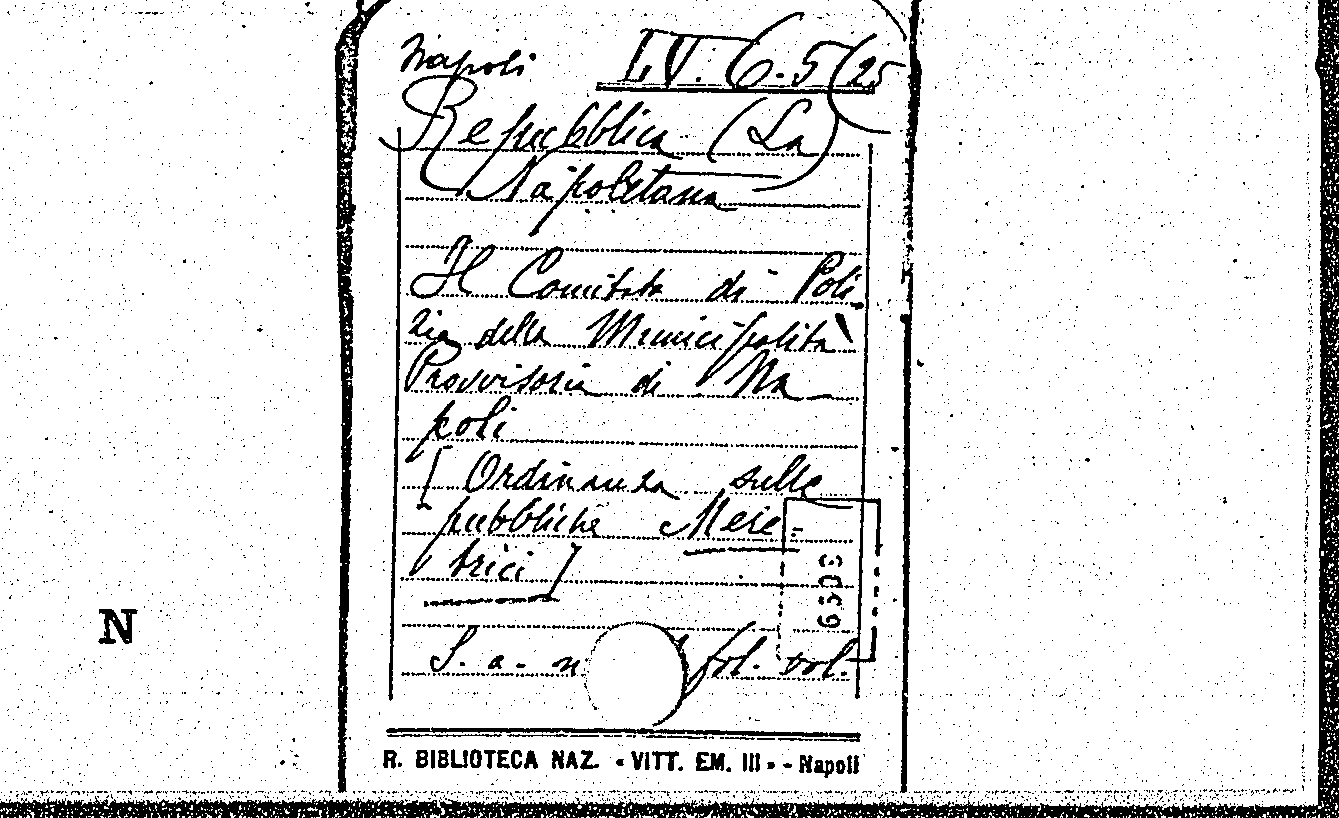 Napoli I.V. 6.5(25
Repubblica (La)
Napoletana
Il Comitato di Poli-
zia della Municipalità
Provvisoria di Na
poli
[Ordinanza sulle
pubbliche Mere-
trici]
6503
N
S. a. n fol. vol.
R. BIBLIOTECA NAZ. « VITT. EM. III » - Napoli